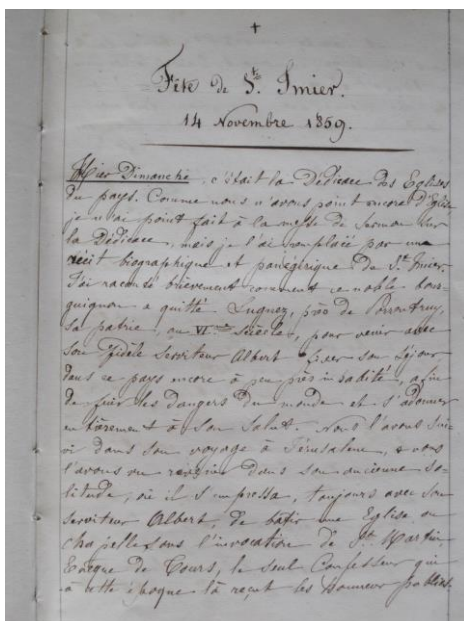 +
Fête de St. Imier.
14 Novembre 1859.
Hier Dimanche, c'était la Dédicace des Eglises
du pays. Comme nous n'avons point encore d'Eglise
je n'ai point fait à la messe de Sermon sur
la Dédicace, mais je l'ai remplacé par un
récit biographique et panégirique de St. Imier.
J'ai raconté brièvement comment ce noble bour-
guignon a quitté Lugnez, près de Porrentruy,
sa patrie, au VI. Siècle, pour venir avec
son fidèle serviteur Albert fixer son séjour
dans ce pays encore à peu près inhabité, afin
de fuir les dangers du monde et s'adonner
entièrement à son Salut. Nous l'avons sui-
vi dans son voyage à Jérusalem, & nous
l'avons vu revenir dans son ancienne so-
litude, où il s'empressa, toujours avec son
serviteur Albert, de bâtir une Eglise ou
chapelle sous l'invocation de St. Martin
Evêque de Tours, le seul Confesseur qui
à cette époque là reçut les honneurs publics.